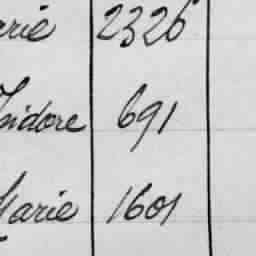 arie 2326
Isidore 691
Marie 1601